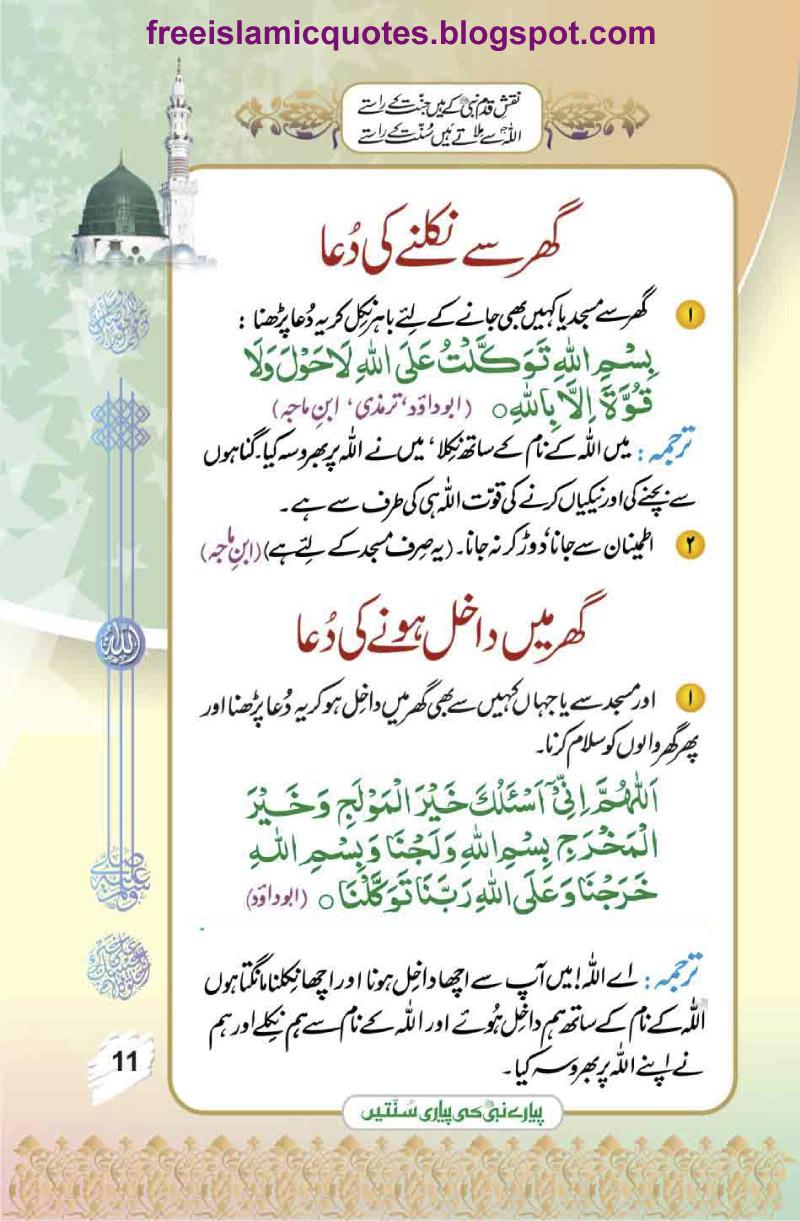 freeislamicquotes.blogspot.com
نقش قدم نبی کے ہیں جنت کے راستے
اللہ سے ملاتے ہیں سُنّت کے راستے
گھر سے نکلنے کی دُعا
۱ گھر سے مسجد یا کہیں بھی جانے کے لئے باہر نکل کر یہ دُعا پڑھنا :
بِسْمِ اللهِ تَوَكَّلْتُ عَلَى اللهِ لَا حَوْلَ وَلَا
قُوَّةَ اِلَّا بِاللهِ ○ (ابوداؤد، ترمذی، ابنِ ماجہ)
ترجمہ: میں اللہ کے نام کے ساتھ نِکلا، میں نے اللہ پر بھروسہ کیا۔ گناہوں
سے بچنے کی اور نیکیاں کرنے کی قوّت اللہ ہی کی طرف سے ہے۔
۲ اطمینان سے جانا، دوڑ کر نہ جانا۔ (یہ صِرف مسجد کے لئے ہے) (ابنِ ماجہ)
گھر میں داخل ہونے کی دُعا
۱ اور مسجد سے یا جہاں کہیں سے بھی گھر میں داخِل ہو کر یہ دُعا پڑھنا اور
پھر گھر والوں کو سلام کرنا۔
اَللّٰهُمَّ اِنِّيْٓ اَسْئَلُكَ خَيْرَ الْمَوْلَجِ وَخَيْرَ
الْمَخْرَجِ بِسْمِ اللهِ وَلَجْنَا وَبِسْمِ اللهِ
خَرَجْنَا وَعَلَى اللهِ رَبِّنَا تَوَكَّلْنَا ○ (ابوداؤد)
ترجمہ: اے اللہ! میں آپ سے اچھا داخِل ہونا اور اچھا نِکلنا مانگتا ہوں
اللہ کے نام کے ساتھ ہم داخِل ہُوئے اور اللہ کے نام سے ہم نِکلے اور ہم
نے اپنے اللہ پر بھروسہ کیا۔
اللہ
11
پیارے نبی کی پیاری سُنتیں